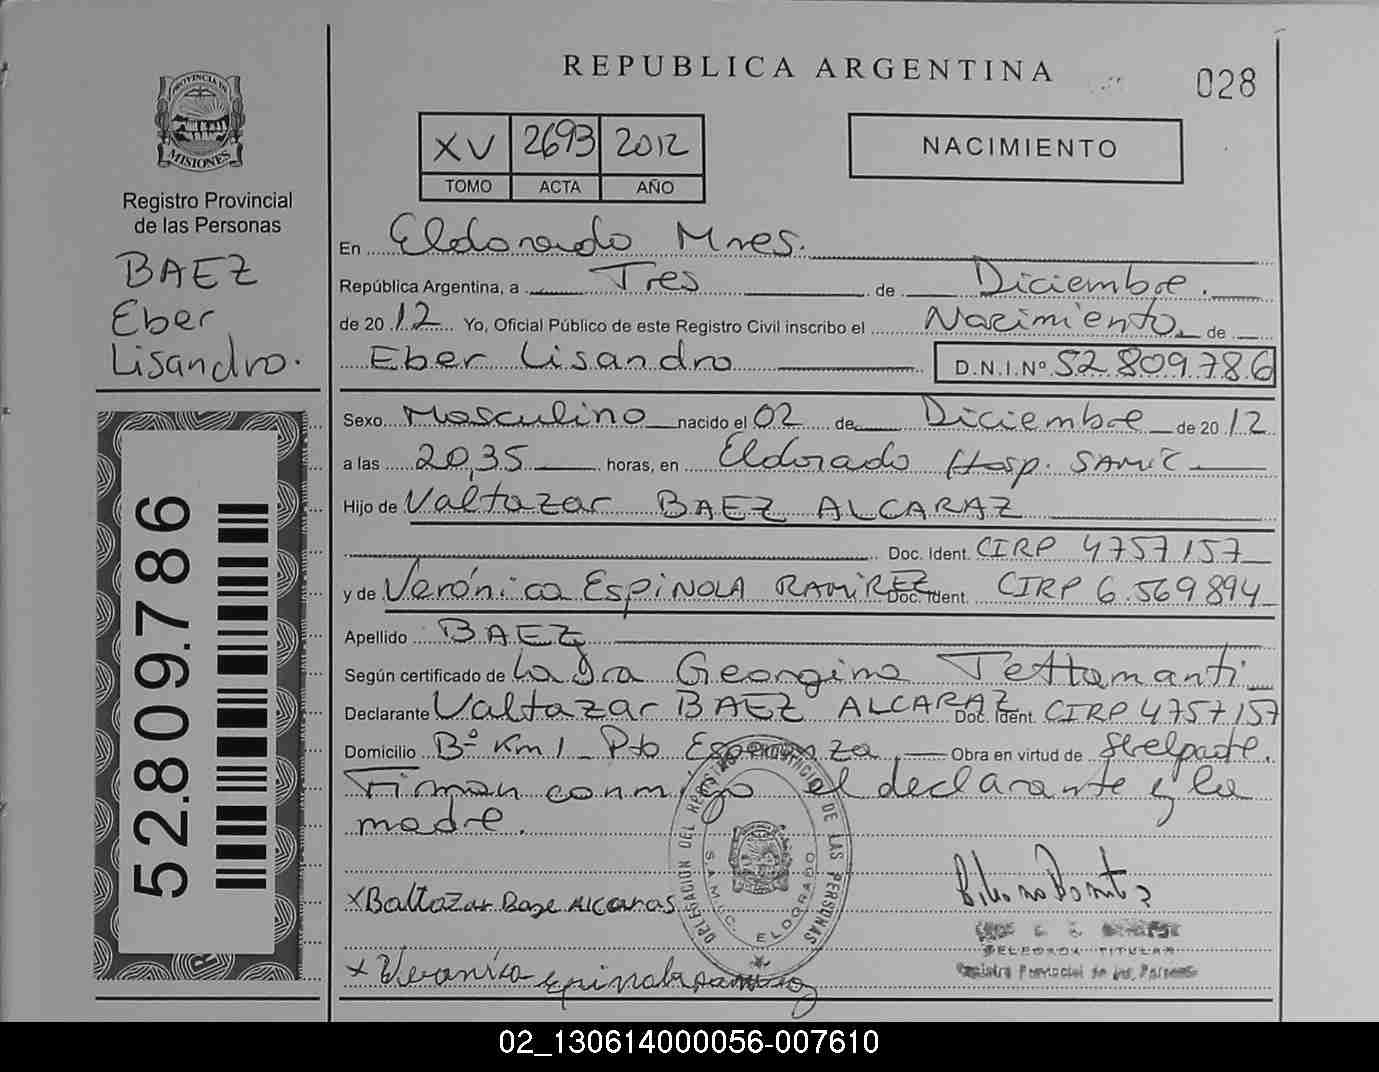 REPUBLICA ARGENTINA
028
PROVINCIA DE
MISIONES
Registro Provincial
de las Personas
BAEZ
Eber
Lisandro.
XV 2693 2012
TOMO ACTA AÑO
NACIMIENTO
En Eldorado Mnes.
República Argentina, a Tres de Diciembre.
de 2012 Yo, Oficial Público de este Registro Civil inscribo el Nacimiento de
Eber Lisandro D.N.I.Nº 52.809.786
Sexo Masculino nacido el 02 de Diciembre de 2012
a las 20,35 horas, en Eldorado Hosp. SAMIC
Hijo de Valtazar BAEZ ALCARAZ
Doc. Ident. CIRP 4757157
y de Verónica ESPINOLA RAMIREZ Doc. Ident. CIRP 6.569894
Apellido BAEZ
Según certificado de La Dra Georgina Tettamanti
Declarante Valtazar BAEZ ALCARAZ Doc. Ident. CIRP 4757157
Domicilio Bº Km 1 Pto Esperanza Obra en virtud de
Firman conmigo el declarante y la
madre.
52.809.786
DELEGACION DEL REGISTRO PROVINCIAL DE LAS PERSONAS
S.A.M.I.C. ELDORADO
x Baltazar Baez Alcaras
DELEGADA TITULAR
Registro Provincial de las Personas
x Veronica Espinola Ramirez
02_130614000056-007610